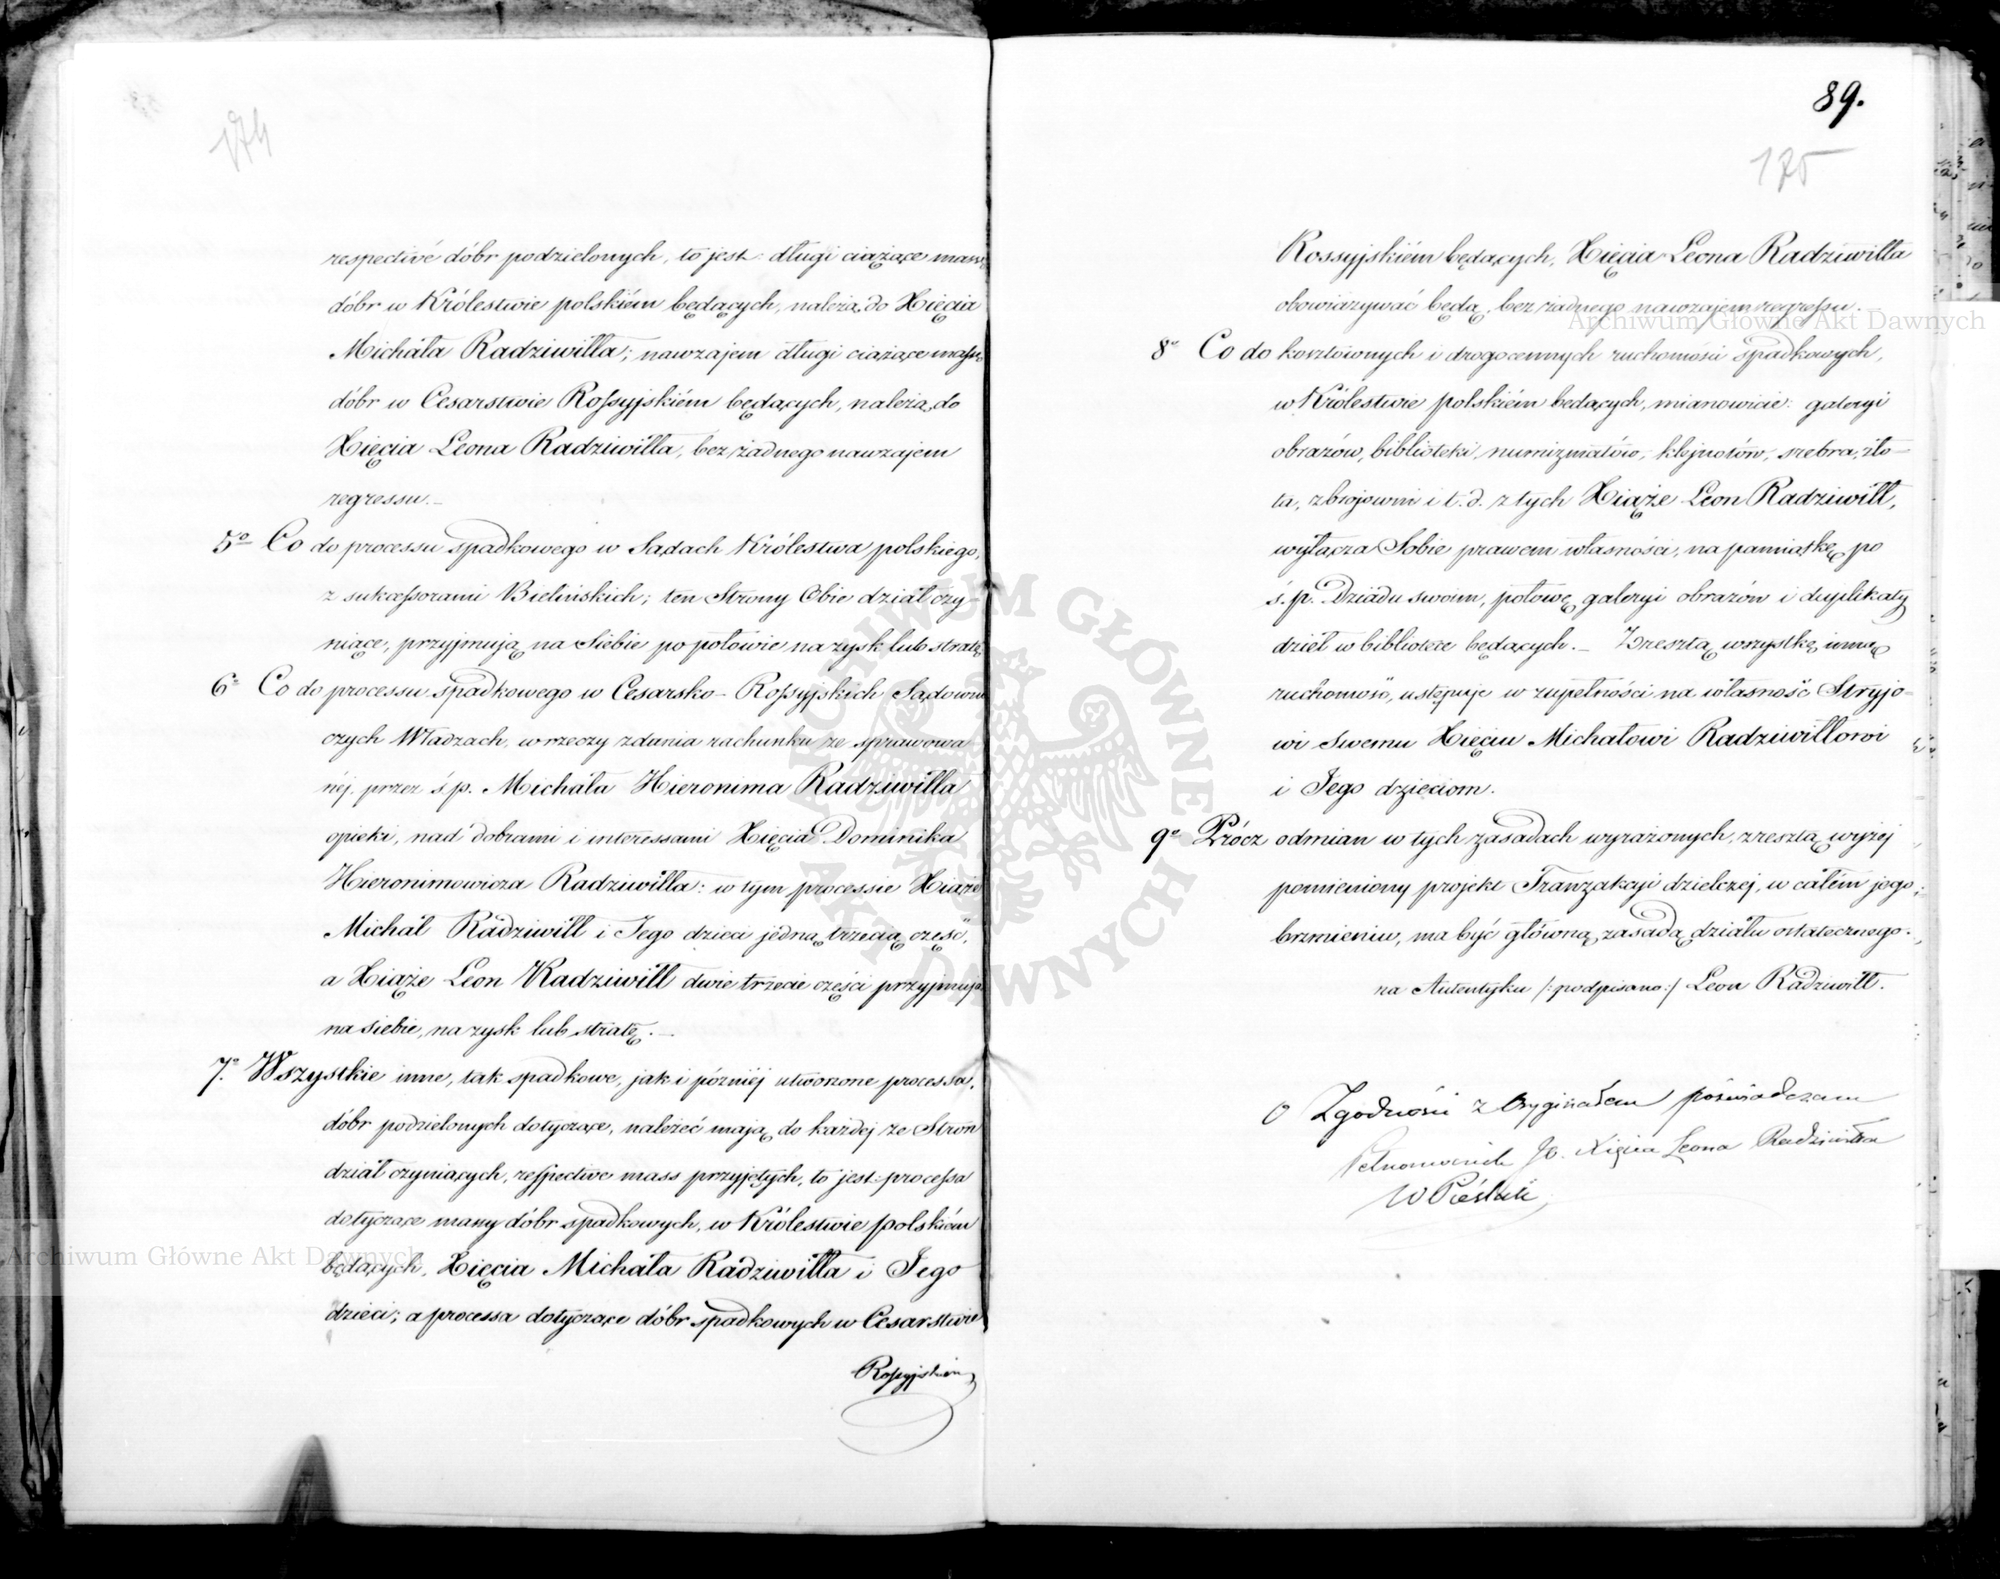 174
respectivé dóbr podzielonych, to jest: długi ciążące massę
dóbr w Królestwie polskiém będących, należą do Xięcia
Michała Radziwiłła; nawzajem długi ciążące massę
dóbr w Cesarstwie Rossyjskiém będących, należą do
Xięcia Leona Radziwiłła, bez żadnego nawzajem
regressu.—
5º Co do processu spadkowego w Sądach Królestwa polskiego,
z sukcessorami Bielińskich; ten Strony Obie dział czy-
niące, przyjmują na Siebie po połowie na zysk lub stratę
6º Co do processu spadkowego w Cesarsko-Rossyjskich Sądowni
czych Władzach, w rzeczy zdania rachunku ze sprawowa
néj przez ś.p. Michała Hieronima Radziwiłła
opieki, nad dobrami i interessami Xięcia Dominika
Hieronimowicza Radziwiłła: w tym processie Xiąże
Michał Radziwiłł i Jego dzieci jedną trzecią część,
a Xiąże Leon Radziwiłł dwie trzecie części przyjmują
na siebie, na zysk lub stratę.—
7º Wszystkie inne, tak spadkowe, jak i później utworzone processa,
dóbr podzielonych dotyczące, należeć mają do każdej ze Stron
dział czyniących, respective mass przyjętych, to jest: processa
dotyczące massy dóbr spadkowych, w Królestwie polskiém
będących, Xięcia Michała Radziwiłła i Jego
dzieci; a processa dotyczące dóbr spadkowych w Cesarstwie
Rossyjskiém
89.
175
Rossyjskiém będących, Xięcia Leona Radziwiłła
obowiązywać będą, bez żadnego nawzajem regressu.
8º Co do kosztownych i drogocennych ruchomości spadkowych,
w Królestwie polskiém będących, mianowicie: galeryi
obrazów, biblioteki, numizmatów, klejnotów, srebra, zło-
ta, zbrojowni i t.d. z tych Xiąże Leon Radziwiłł,
wyłącza Sobie prawem własności, na pamiątkę po
ś.p. Dziadu swoim, połowę galeryi obrazów i duplikaty
dzieł w bibliotece będących.— Zresztą wszystkę inną
ruchomość, ustępuje w zupełności na własność Stryjo-
wi Swemu Xięciu Michałowi Radziwiłłowi
i Jego dzieciom.
9º Prócz odmian w tych zasadach wyrażonych, zresztą wyżej
pomieniony projekt Tranzakcyi dzielczej, w całém jego
brzmieniu, ma być główną zasadą działu ostatecznego.
na Autentyku /:podpisano:/ Leon Radziwiłł.
O Zgodności z Oryginałem poświadczam
Pełnomocnik Jo. Xięcia Leona Radziwiłła
Archiwum Główne Akt Dawnych
Archiwum Główne Akt Dawnych
ARCHIWUM GŁÓWNE AKT DAWNYCH